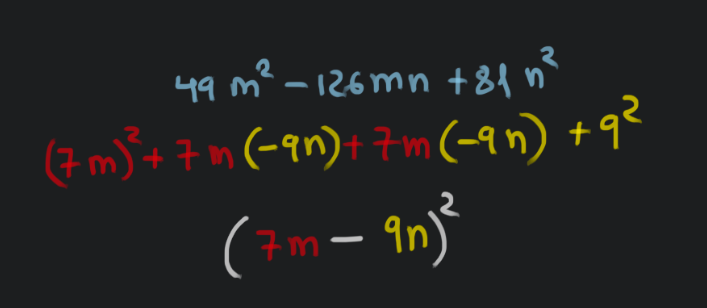 49 m² - 126mn + 81 n²
(7m)² + 7m (-9n) + 7m (-9n) + 9²
(7m - 9n)²